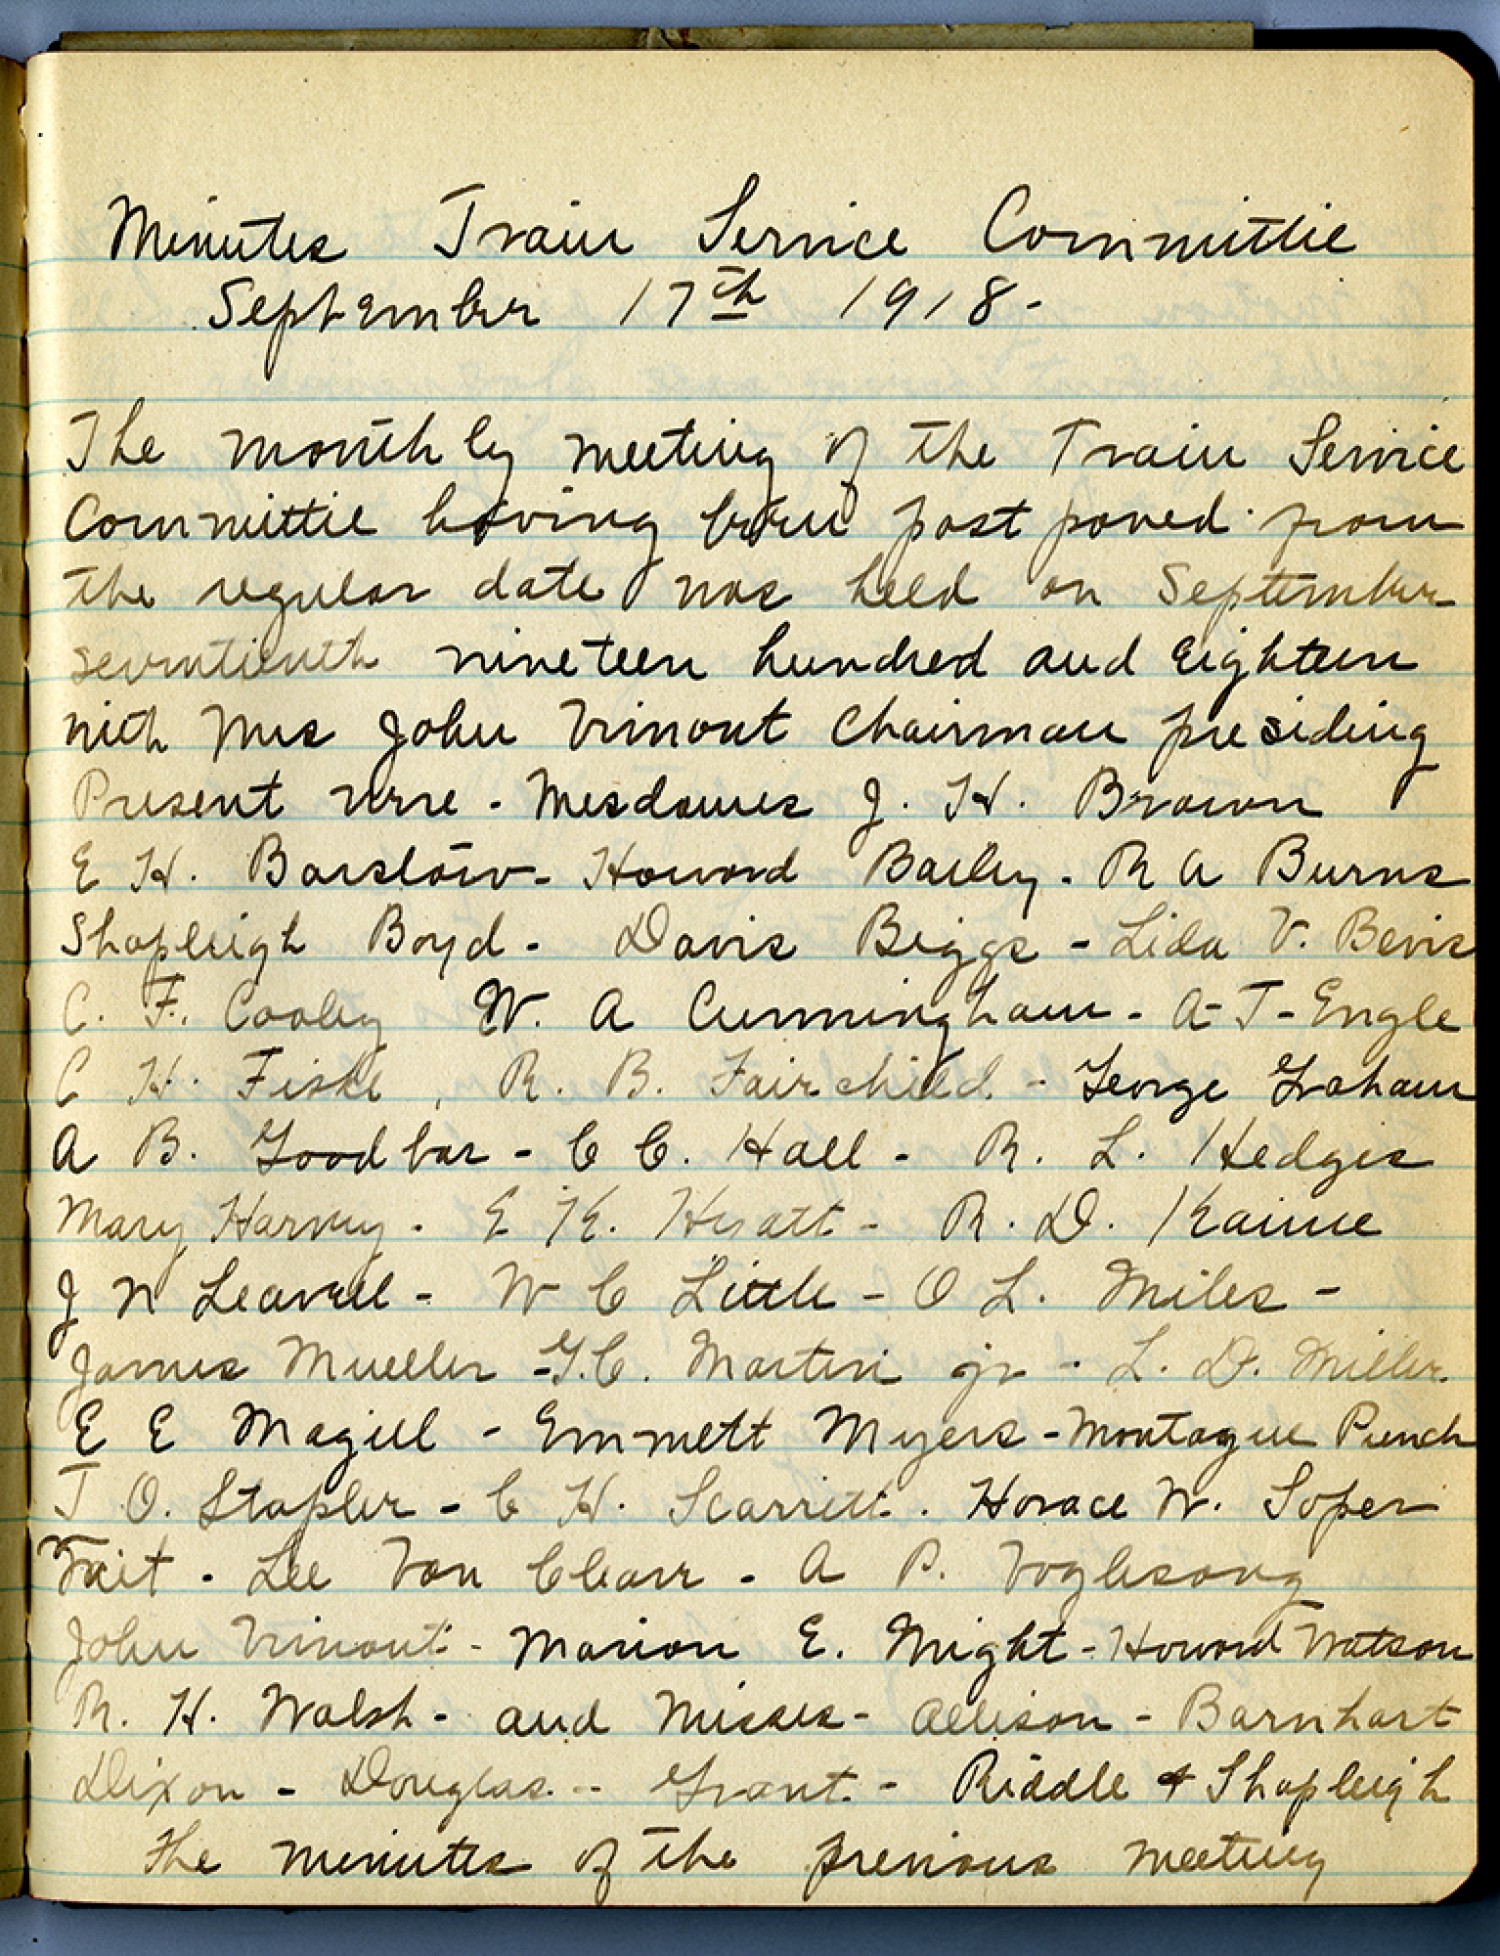 Minutes Train Service Committee
September 17th 1918-
The monthly meeting of the Train Service
Committee having been post poned from
the regular date was held on September
seventienth nineteen hundred and Eighteen
with Mrs John Vrinont Chairman presiding
Present were - Mesdames J. H. Brown
E H. Barslow - Howard Bailey - R A Burns
Shapleigh Boyd - Davis Biggs - Lida V. Bevis
C. F. Cooley W. A Cunningham - A-T-Engle
C H. Fiske, R. B. Fairchild - George Graham
A B. Goodbar - C C. Hall - R. L. Hedges
Mary Harvey - E K. Hyatt - R. D. Kaime
J N Leavell - W C Little - O L. Miles -
James Mueller - G.C. Martin jr - L. D. Miller.
E E Magill - Emmett Myers - Montague Punch
T O. Stapler - C H. Scarritt. Horace W. Soper
Tait - Lee Van Cleave - A P. Voglesong
John Vrinont - Marion E. Wright - Howard Watson
R. H. Walsh - and Misses - Allison - Barnhart
Dixon - Douglas - Grant - Riddle & Shapleigh
The minutes of the previous meeting